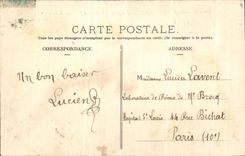 CARTE POSTALE.
Tous les pays étrangers n'acceptent pas la correspondance au recto. (Se renseigner à la poste)
CORRESPONDANCE
ADRESSE
Un bon baiser
Lucien
Madame Lucien Lavent
Laboratoire de Chimie de Mr Brocq
Hopital St Louis 44 Rue Bichat
Paris (10e)